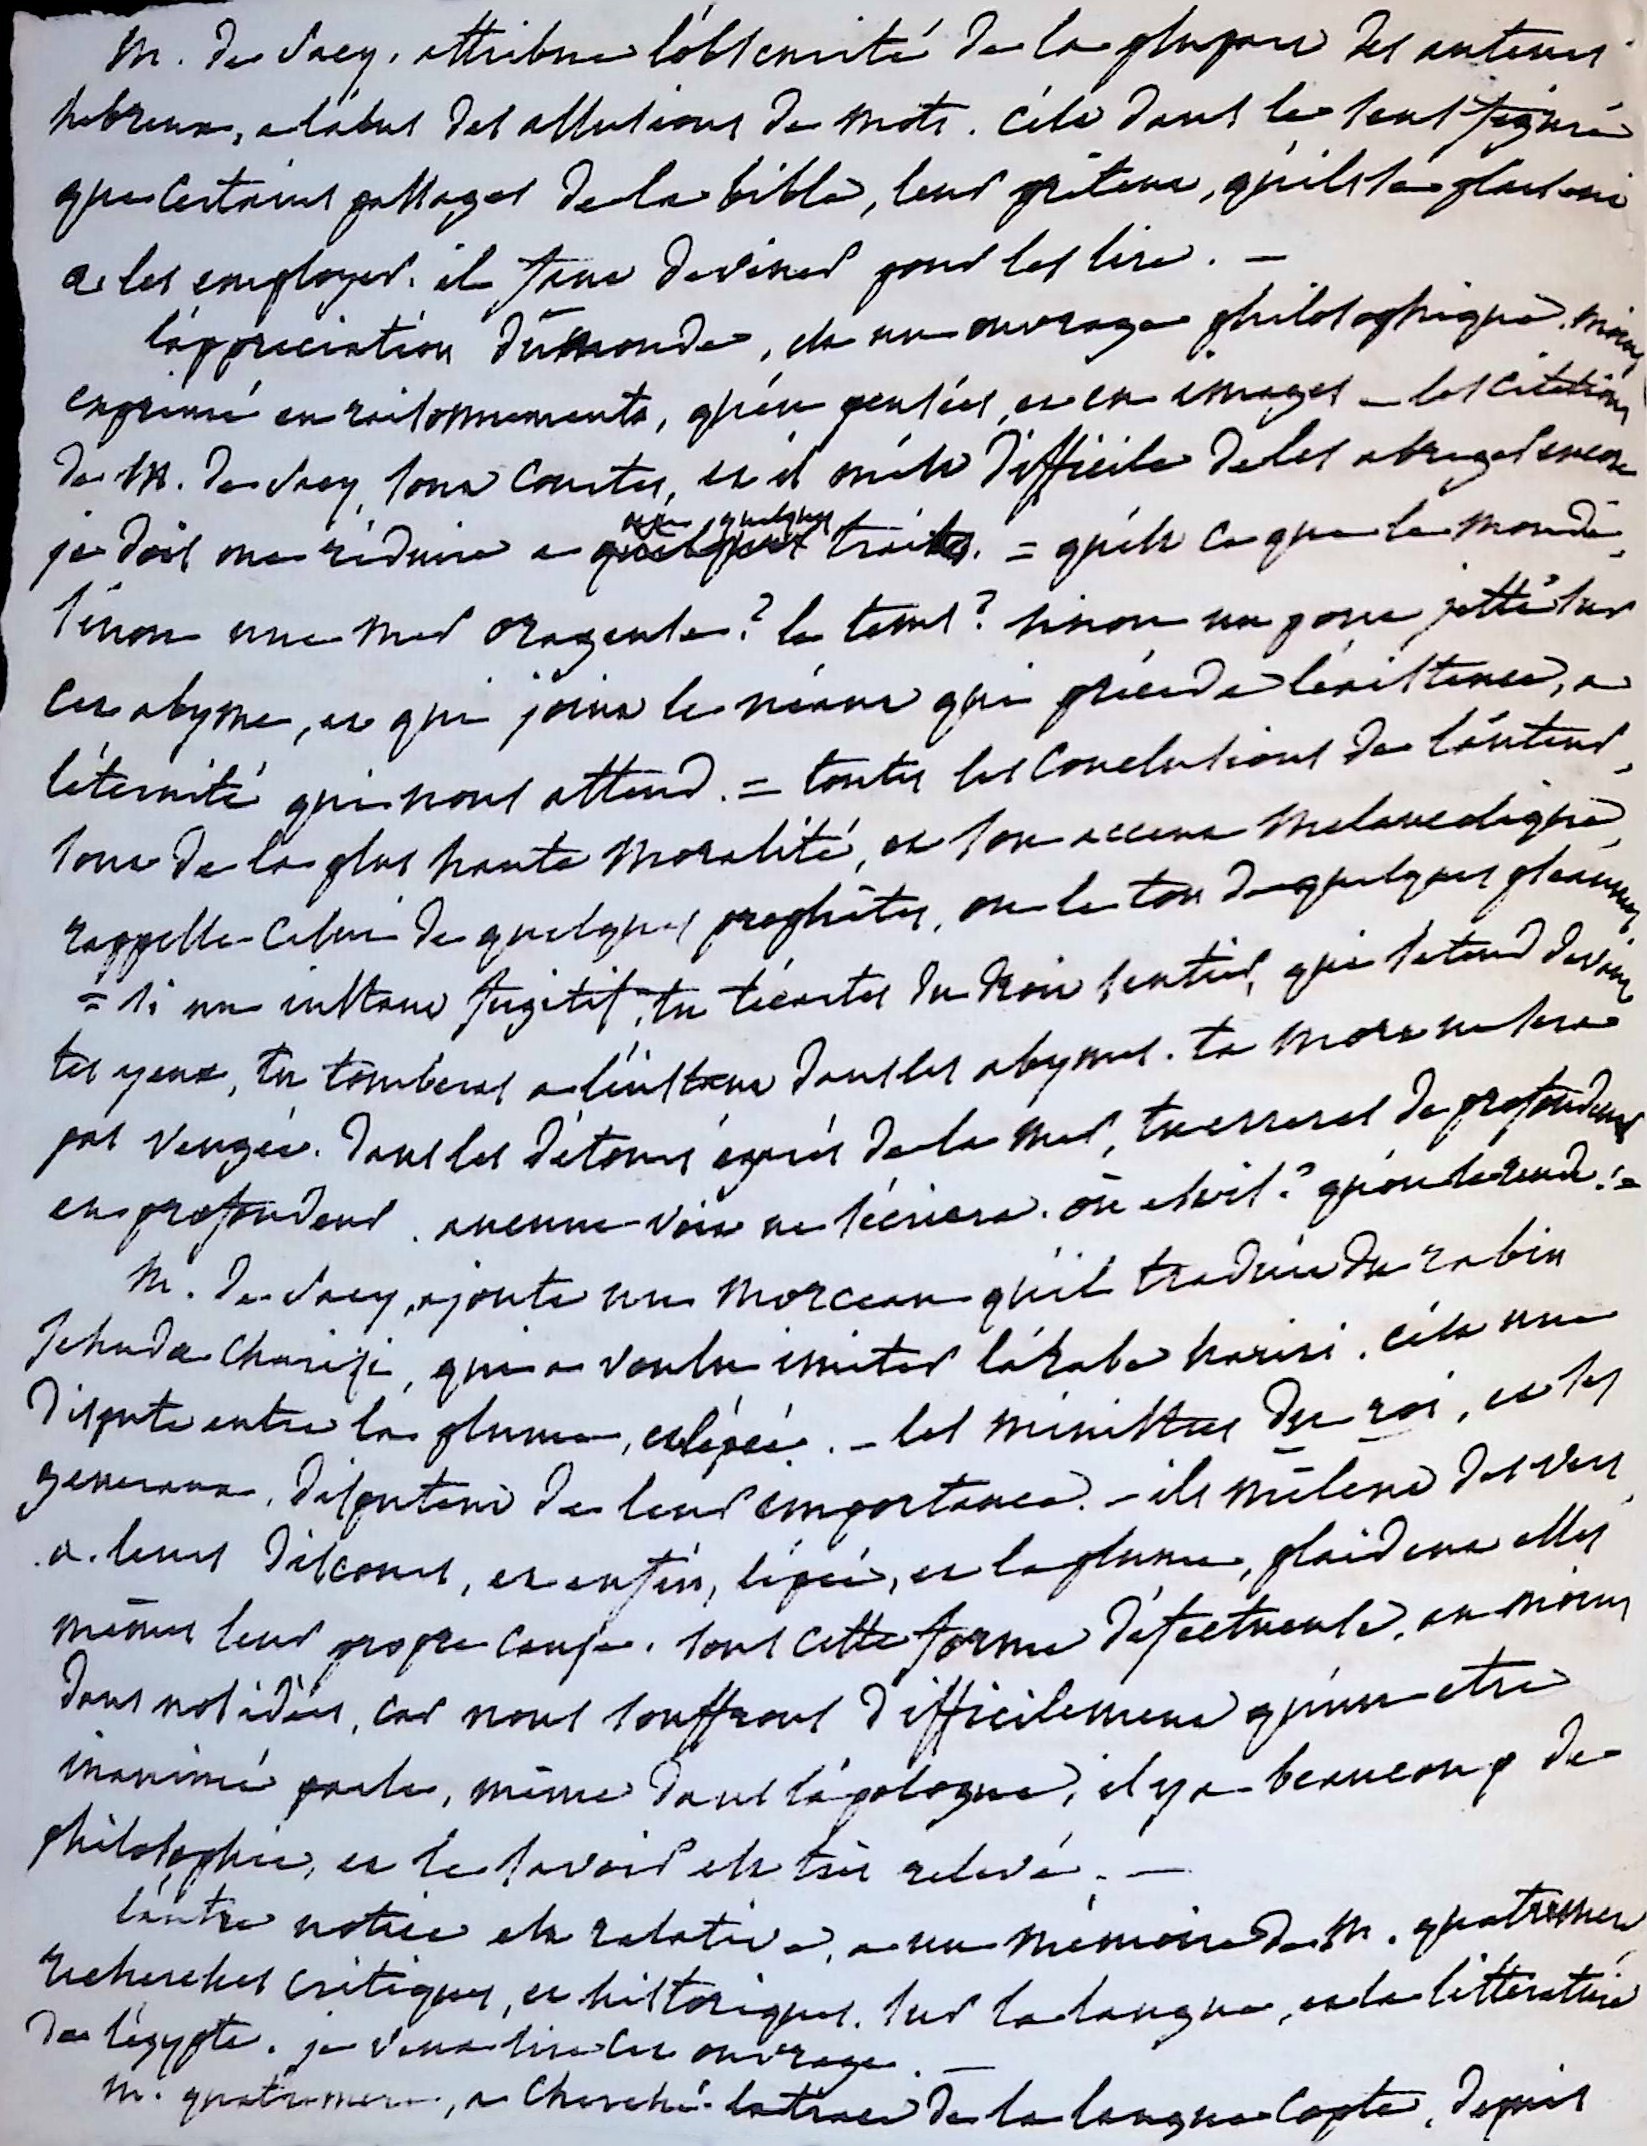 M. de Sacy, attribue l'obscurité de la plupart des auteurs
hebreux, a l'abus des allusions de mots. c'est dans le sens figuré
que certains passages de la bible, leur prêtent, qu'ils se plaisent
a les employer. il faut deviner pour les lire. —
l'appréciation du monde, est un ouvrage philosophique, moins
exprimé en raisonnements, qu'en pensées, et en images — les citations
de M. de Sacy, sont courtes, et il m'est difficile de les abreger encore
je dois me réduire a quelques traits. = qu'est ce que le monde,
sinon une mer orageuse? le tems? sinon un pont jetté sur
cet abyme, et qui joint le néant qui précéda l'existence, a
l'éternité qui nous attend. = toutes les conclusions de l'auteur,
sont de la plus haute moralité, et son accent melancolique,
rappelle celui de quelques prophètes, ou le ton de quelques pseaumes
= si un instant fugitif, tu t'écartes du droit sentier, qui s'etend devant
tes yeux, tu tomberas a l'instant dans les abymes. ta mort ne sera
pas vengée. dans les détours égarés de la mer, tu erreras de profondeur
en profondeur. aucune voix ne s'écriera. où est-il? qu'on le rende! =
M. de Sacy, ajoute un morceau qu'il traduit du rabin
Jehuda Charizi, qui a voulu imiter l'arabe hariri. c'est une
dispute entre la plume, et l'épée. — les ministres du roi, et les
generaux, disputent de leur importance. — ils mêlent des vers,
a leurs discours, et enfin, l'épée, et la plume, plaident elles
mêmes leur propre cause. sous cette forme défectueuse, au moins
dans nos idées, car nous souffrons difficilement qu'un etre
inanimé parle, même dans l'apologue, il y a beaucoup de
philosophie, et le savoir est très relevé. —
l'autre notice est relative, a un mémoire de M. quatremere
recherches critiques, et historiques, sur la langue, et la littérature
de l'égypte. je veux lire cet ouvrage. —
M. quatremere, a cherché la trace de la langue copte, depuis